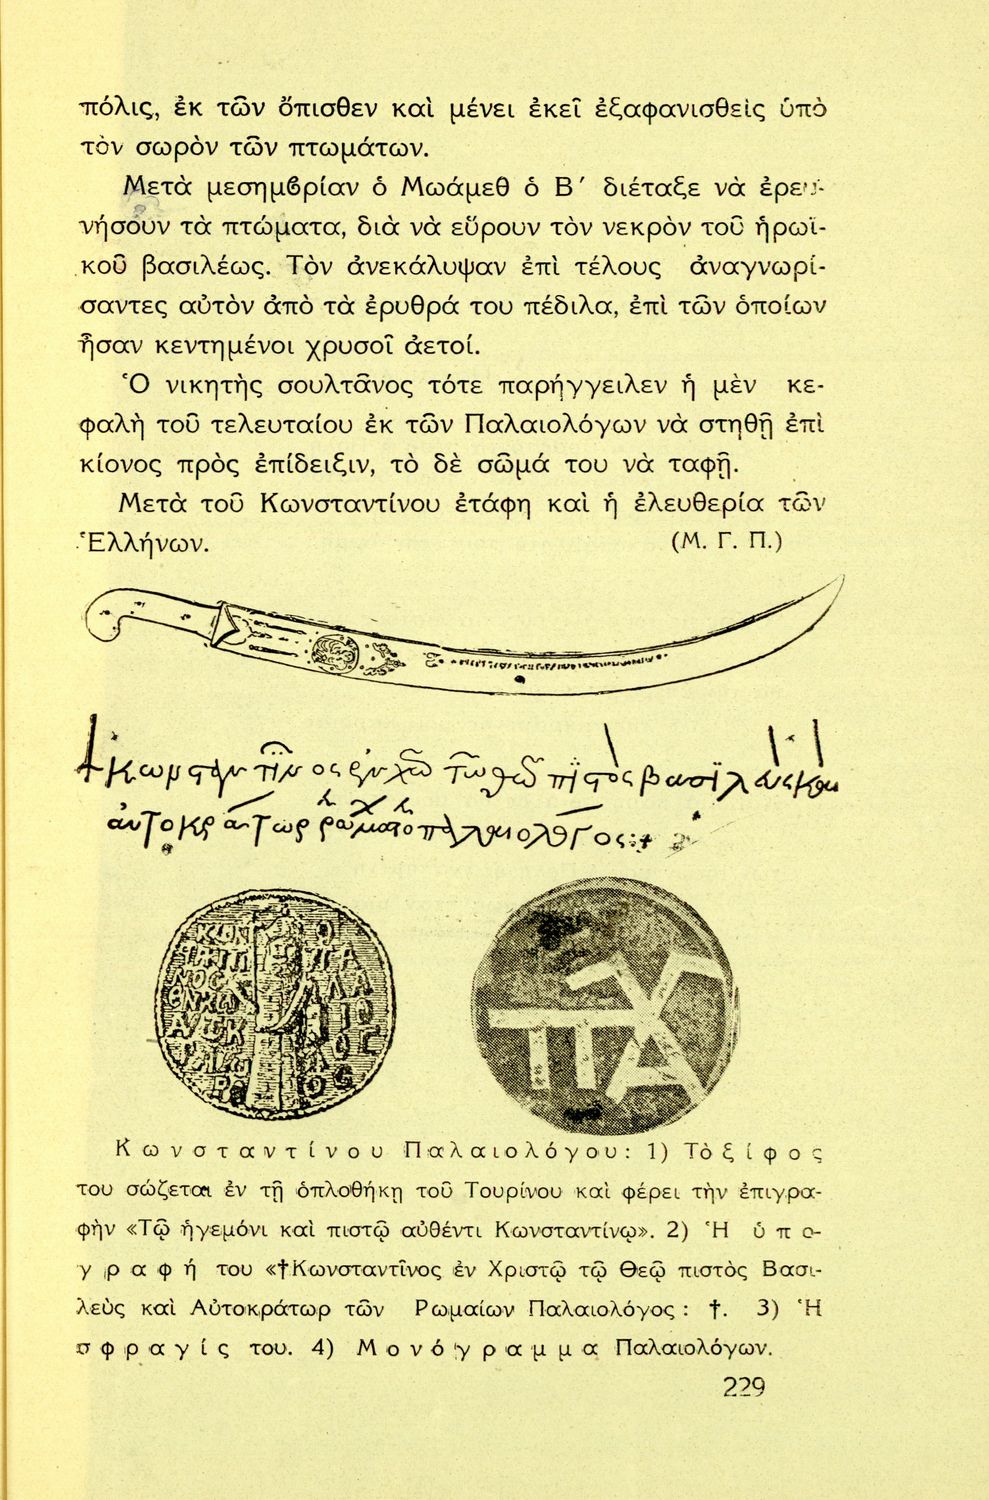 πόλις, ἐκ τῶν ὄπισθεν καὶ μένει ἐκεῖ ἐξαφανισθεὶς ὑπὸ
τὸν σωρὸν τῶν πτωμάτων.
Μετὰ μεσημβρίαν ὁ Μωάμεθ ὁ Β΄ διέταξε νὰ ἐρευ-
νήσουν τὰ πτώματα, διὰ νὰ εὕρουν τὸν νεκρὸν τοῦ ἡρωϊ-
κοῦ βασιλέως. Τὸν ἀνεκάλυψαν ἐπὶ τέλους ἀναγνωρί-
σαντες αὐτὸν ἀπὸ τὰ ἐρυθρά του πέδιλα, ἐπὶ τῶν ὁποίων
ἦσαν κεντημένοι χρυσοῖ ἀετοί.
Ὁ νικητὴς σουλτᾶνος τότε παρήγγειλεν ἡ μὲν κε-
φαλὴ τοῦ τελευταίου ἐκ τῶν Παλαιολόγων νὰ στηθῇ ἐπὶ
κίονος πρὸς ἐπίδειξιν, τὸ δὲ σῶμά του νὰ ταφῇ.
Μετὰ τοῦ Κωνσταντίνου ἐτάφη καὶ ἡ ἐλευθερία τῶν
Ἑλλήνων. (Μ. Γ. Π.)
ΠΑ
Κωνσταντίνου Παλαιολόγου: 1) Τὸ ξίφος
του σώζεται ἐν τῇ ὁπλοθήκῃ τοῦ Τουρίνου καὶ φέρει τὴν ἐπιγρα-
φὴν «Τῷ ἡγεμόνι καὶ πιστῷ αὐθέντι Κωνσταντίνῳ». 2) Ἡ ὑπο-
γραφή του «†Κωνσταντῖνος ἐν Χριστῷ τῷ Θεῷ πιστὸς Βασι-
λεὺς καὶ Αὐτοκράτωρ τῶν Ρωμαίων Παλαιολόγος : †. 3) Ἡ
σφραγίς του. 4) Μονόγραμμα Παλαιολόγων.
229